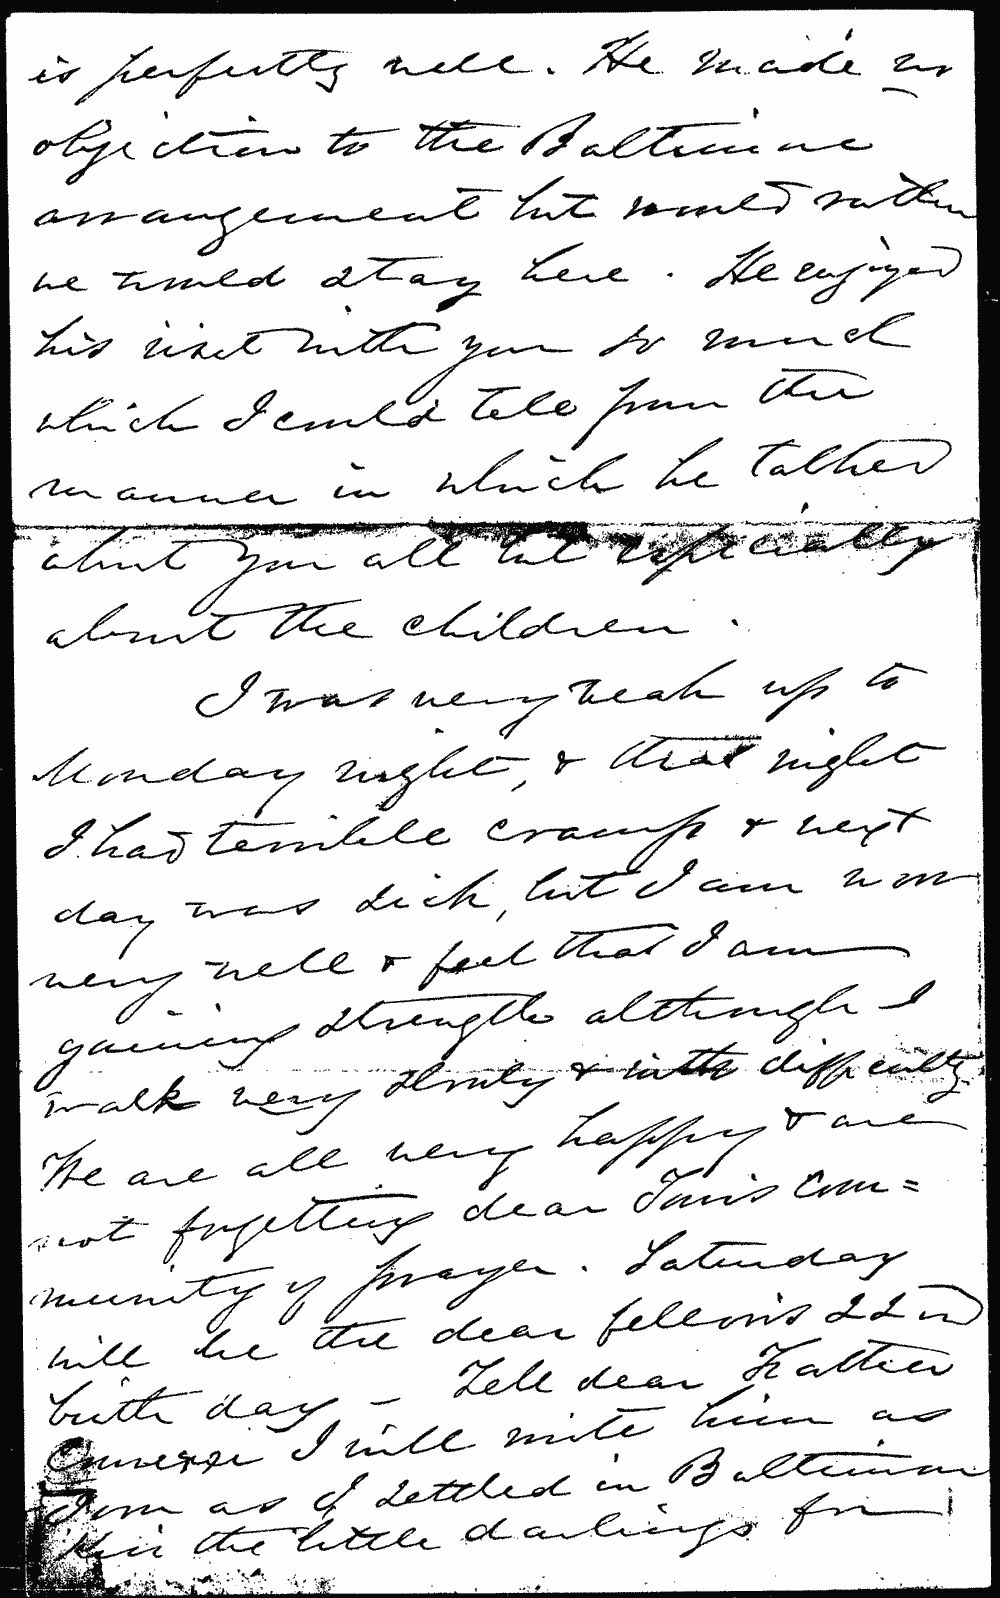 is perfectly well. He made no
objection to the Baltimore
arrangement but would rather
we would stay here. He enjoyed
his visit with you so much
which I could tell from the
manner in which he talked
about you all but especially
about the children.
I was very weak up to
Monday night, & that night
I had terrible cramps & next
day was sick, but I am now
very well & feel that I am
gaining strength although I
walk very slowly & with difficulty
We are all very happy & are
not forgetting dear Tom's com=
munity of prayer. Saturday
will be the dear fellow's 22nd
birth day - Tell dear Father
I will write him as
soon as I settled in Baltimore
Kiss the little darlings for